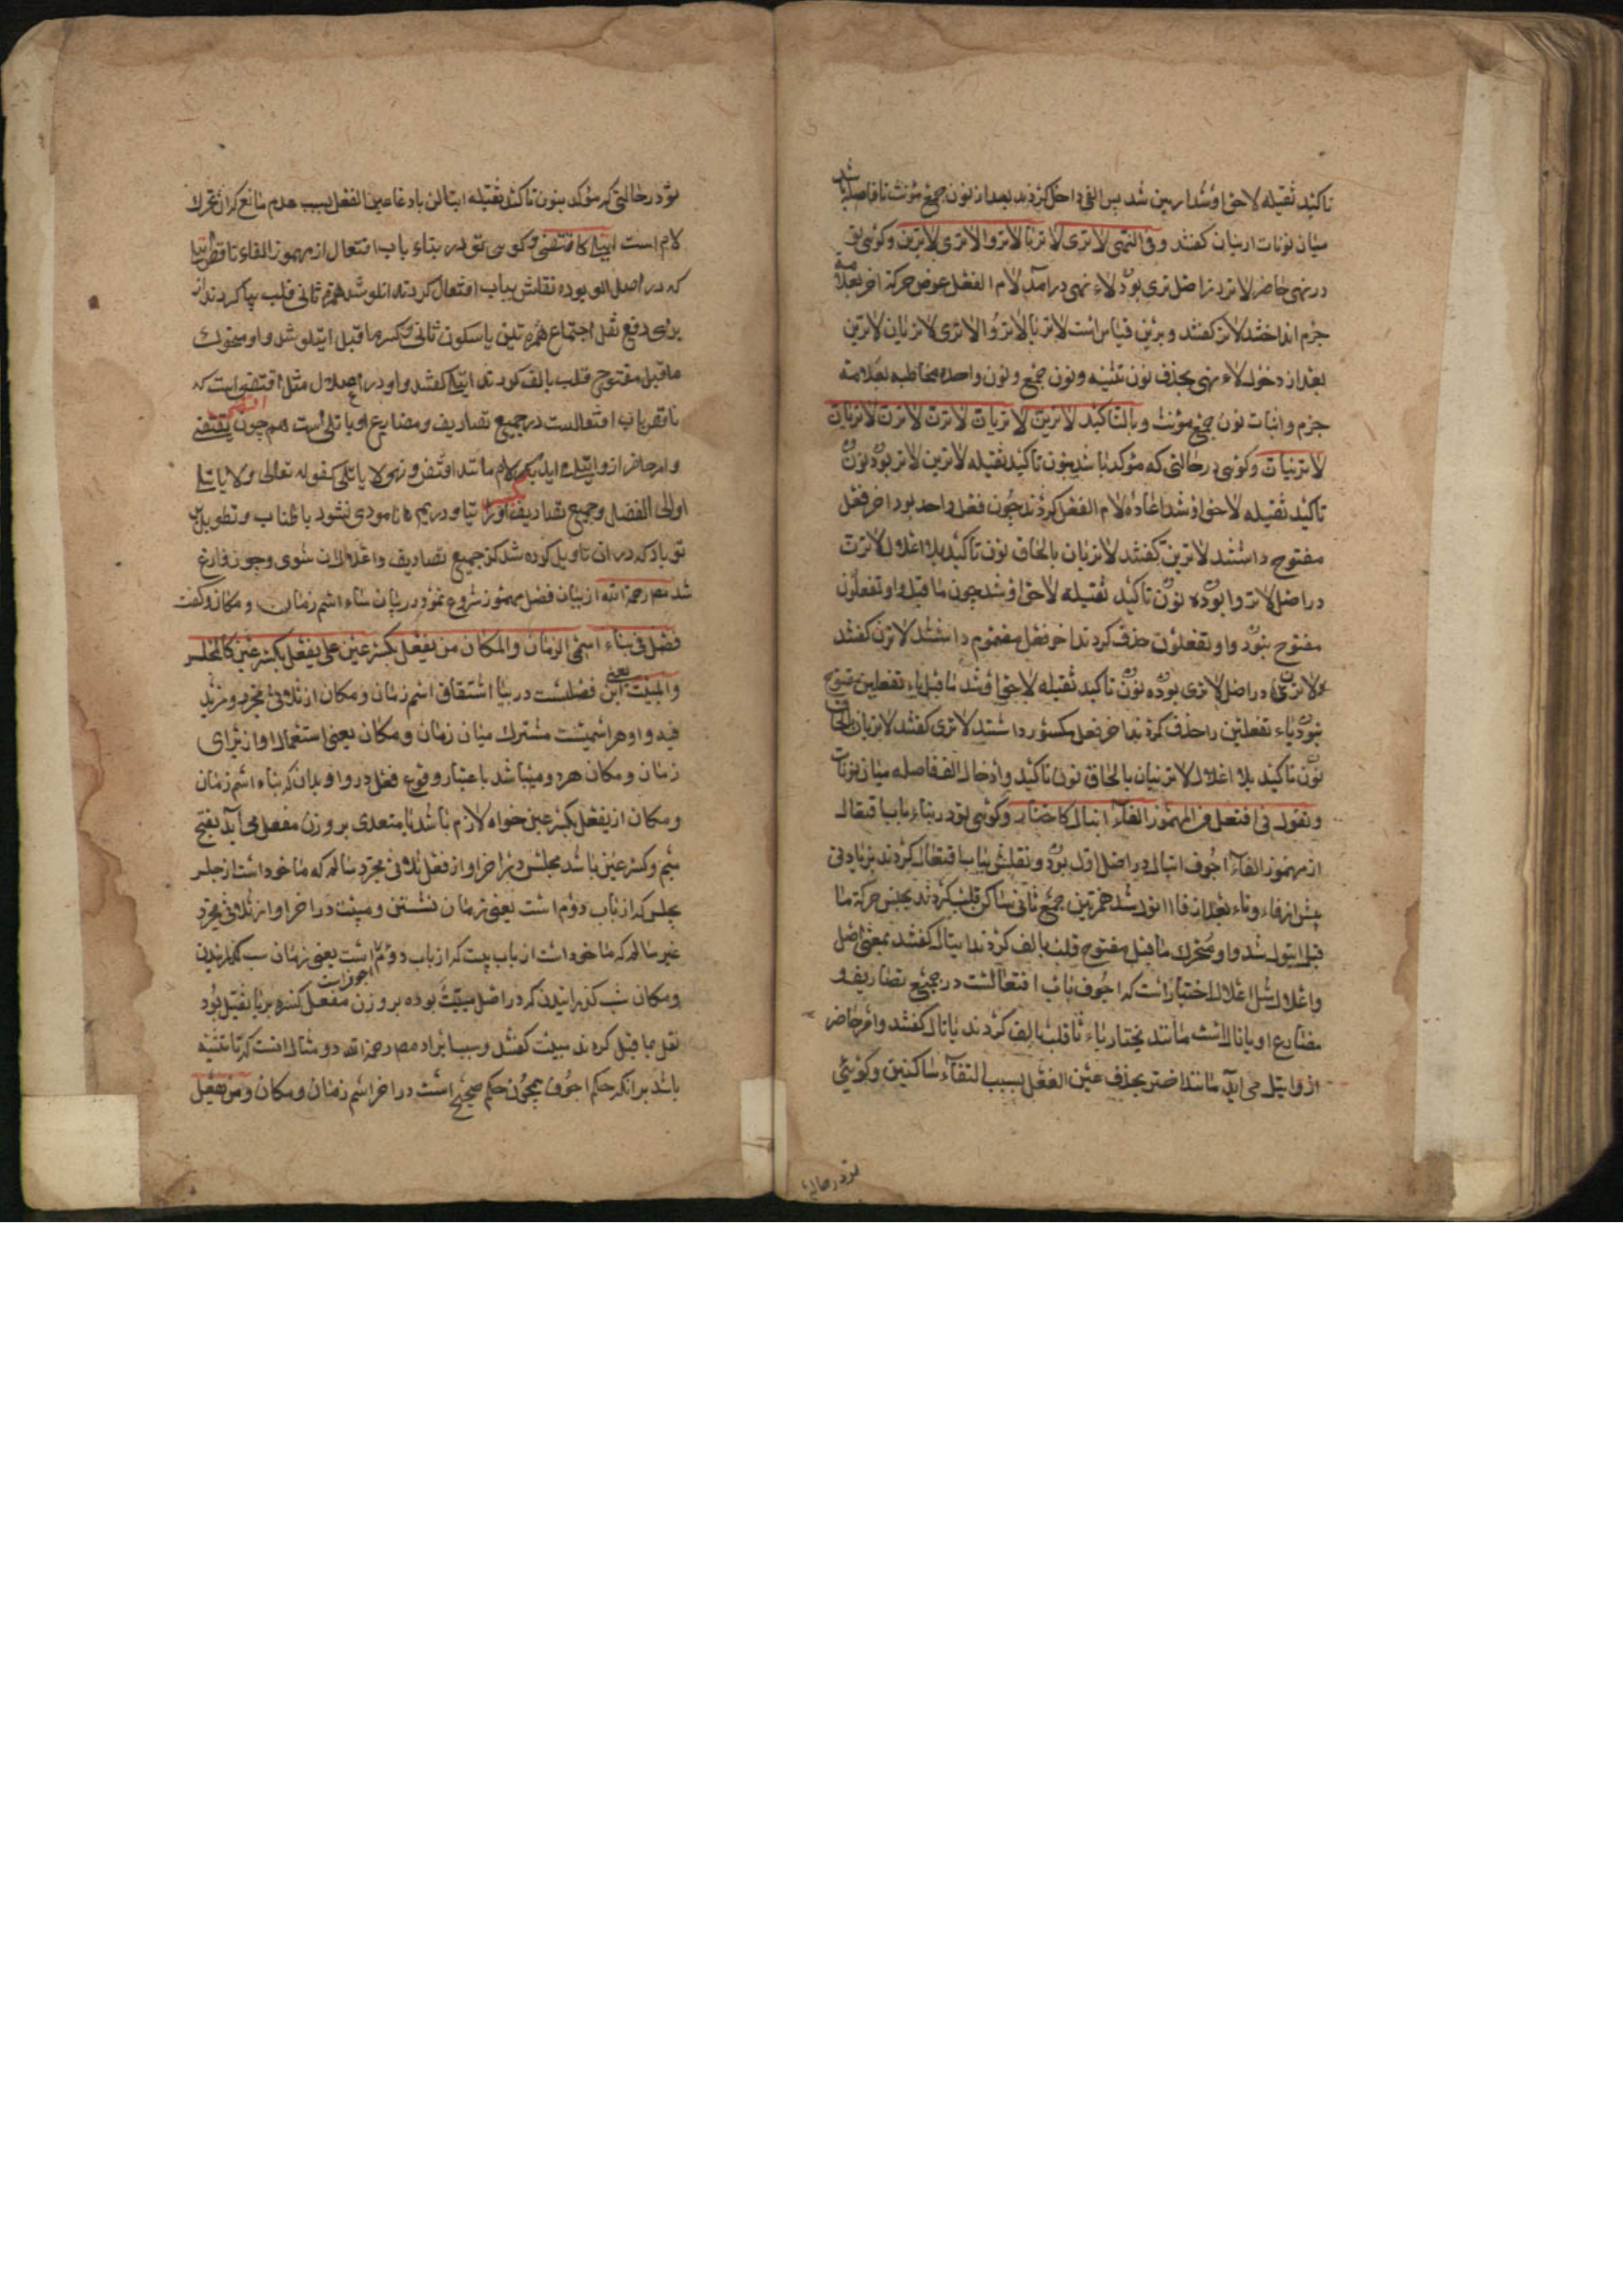 تاکید ثقیله لاحق او شد ارین شد پس الفی داخل کردند بعد از نون جمع مؤنث تا فاصله باشد
میان نونات اریان کفتند وفی النهی لا تری لا تریا لا تروا لا تری لا ترین وکوئی تو
در نهی حاضر لا تر در اصل تری بود لاء نهی درآمد لام الفعل عوض حرکة آخر بعلامة
جزم انداختند لا تر کفتند و برین قیاس است لا تریا لا تروا لا تری لا تریان لا ترین
بعد از دخول لاء نهی بحذف نون تثنیه ونون جمع ونون واحده مخاطبه بعلامة
جزم واثبات نون جمع مؤنث وبالتاکید لا ترین لا تریان لا ترن لا ترن لا تریان
لا ترینان وکوئی در حالتی که مؤکد باشد بنون تاکید ثقیله لا ترین لا تر بود نون
تاکید ثقیله لاحق او شد اعاده لام الفعل کردند چون فعل واحد بود آخر فعل
مفتوح داشتند لا ترین کفتند لا تریان بالحاق نون تاکید بلا اعلال لا ترن
در اصل لا تروا بوده نون تاکید ثقیله لاحق او شد چون ما قبل واو تفعلون
مفتوح بود واو تفعلون حذف کردند آخر فعل مضموم داشتند لا ترن کفتند
ولا ترن در اصل لا تری بوده نون تاکید ثقیله لاحق او شد ما قبل یاء تفعلین مفتوح
بود یاء تفعلین را حذف کردند آخر فعل مکسور داشتند لا تری کفتند لا تریان بالحاق
نون تاکید بلا اعلال لا ترینان بالحاق نون تاکید وادخال الف فاصله میان نونات
وتقول فی افتعل من المهموز الفاء ایتال کاختار وکوئی تو در بناء باب افتعال
از مهموز الفاء اجوف ایتال در اصل اول بود ونقلش بباب افتعال کردند بزیادتی
پیش از فاء وتاء بعد از فا ائتول شد همزتین جمع ثانی ساکن قلب کردند بجنس حرکة ما
قبل ایتول شد واو متحرک ما قبل مفتوح قلب بالف کردند ایتال کفتند بمعنی اصل
واعلال مثل اعلال اختیار است که اجوف باب افتعالست در جمیع تصاریف و
مضارع او یاتال است مانند یختار یاء ثا قلب بالف کردند یاتال کفتند وامر حاضر
ازو ایتل می آید مانند اختر بحذف عین الفعل بسبب التقاء ساکنین وکوئی
تو در حالتی
تو در حالتی که مؤکد بنون تاکید ثقیله ایتالن باد غا عین الفعل بسبب عدم مانع که آن تحرک
لام است ایتلا کاقتضی وکوئی تو در بناء باب افتعال از مهموز الفاء ناقص ایتلا
که در اصل الو بوده نقلش بباب افتعال کردند ائتلو شد همزه ثانی قلب بیا کردند از
برای دفع ثقل اجتماع همزه تین یا سکون ثانی وکسره ما قبل ایتلو شد واو متحرک
ما قبل مفتوح قلب بالف کردند ایتلا کفتند واو در اعلال مثل اقتضی است که
ناقص باب افتعالست در جمیع تصاریف ومضارع او یاتلی است همچون یقتضی
وامر حاضر ازو ایتل آید بکسر لام مانند اقتض ونهی لا یاتلی کقوله تعالی ولا یاتل
اولی الفضل وجمیع تصاریف او را نیاوردیم تا مودی نشود باطناب وتطویل پس
تو یاد که در ان تاویل کرده شد کز جمیع تصاریف واعلالات شوی وچون فارغ
شد مصـ رحمة الله از بیان فصل مهموز شروع نمود در بیان بناء اسم زمان ومکان وکفت
فصل فی بناء اسمی الزمان والمکان من یفعل بکسر عین علی مفعل بکسر عین کالمجلس
والمبیت یعنی این فصلست در بیا اشتقاق اسم زمان ومکان از ثلاثی مجرد ومزید
فیه واو هر اسمیست مشترک میان زمان ومکان یعنی استعمال او از برای
زمان ومکان هردو میباشد باعتبار وقوع فعل درو او بدان که بناء اسم زمان
ومکان از یفعل بکسر عین خواه لازم باشد یا متعدی بر وزن مفعل می آید بفتح
میم وکسر عین باشد مجلس در آخر او از فعل ثلاثی مجرد سالم که ماخود است از جلس
یجلس که از باب دوم است یعنی زمان نشستن ومبیت در آخر او از ثلاثی مجرد
غیر سالم که ماخود است از باب بیت که از باب دوم است یعنی زمان شب کذرانیدن
ومکان شب کذرانیدن که در اصل مبیت بوده بر وزن مفعل کسره بر یا ثقیل بود
نقل بما قبل کردند مبیت کفتند وسبب ایراد مصـ رحمة الله دو مثال انست که تا تنبیه
باشد برانکه حکم اجوف همچون حکم صحیح است در آخر اسم زمان ومکان ومن یفعل